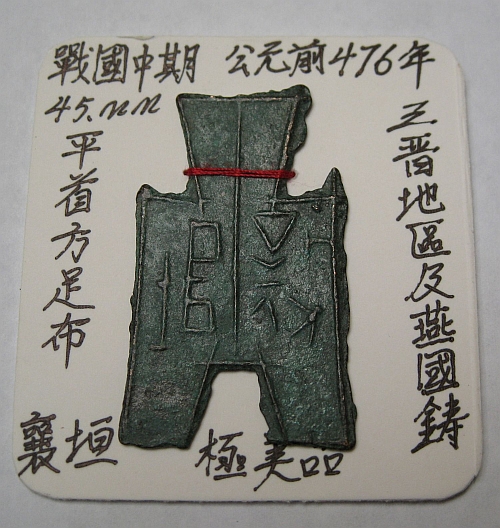 戰國中期 公元前476年
45.mm
三晋地區及燕國鑄
平首方足布
襄垣 極美品